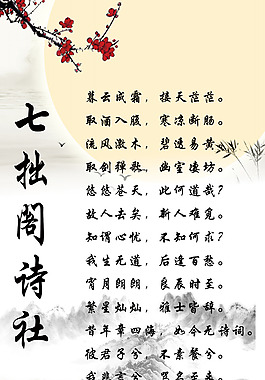 七拙阁诗社
暮云成霜，接天茫茫。
取酒入腹，寒凉断肠。
流风激木，碧透易黄。
取剑弹歌，幽室凄坊。
悠悠苍天，此何道哉？
故人去矣，新人难觅。
知谓心忧，不知何求？
我生无道，后逢百愁。
宵月朗朗，良辰时至。
繁星灿灿，雅士皆辞。
昔年章四海，如今无诗词。
彼君子兮，不素餐兮。